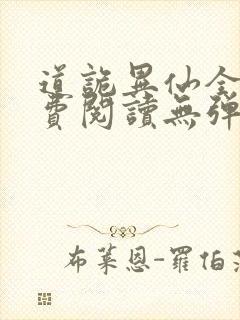 道詭異仙全
費閱讀無彈
布萊恩-羅伯